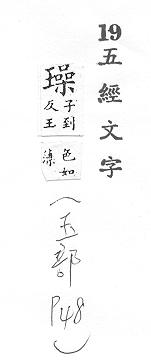 19五經文字
璪子到反王色如藻(玉部 P48)